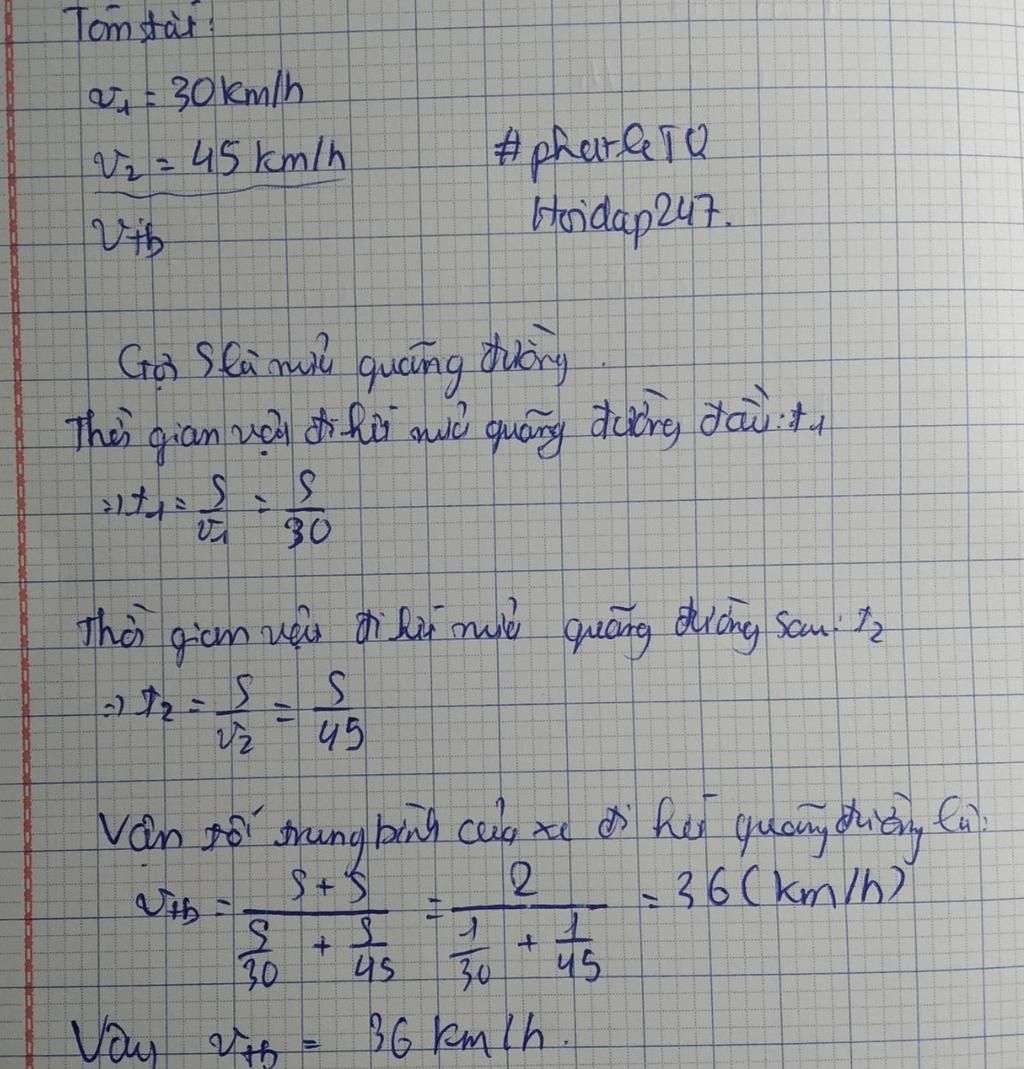 Tóm tắt:
v₁ = 30 km/h
v₂ = 45 km/h
#
Hoidap247.
vtb
Gọi S là nửa quãng đường.
Thời gian vật đi hết nửa quãng đường đầu: t₁
=> t₁ = S/v₁ = S/30
Thời gian vật đi hết nửa quãng đường sau: t₂
=> t₂ = S/v₂ = S/45
Vận tốc trung bình của xe đi hết quãng đường là:
vtb = (S + S)/(S/30 + S/45) = 2/(1/30 + 1/45) = 36 (km/h)
Vậy vtb = 36 km/h.